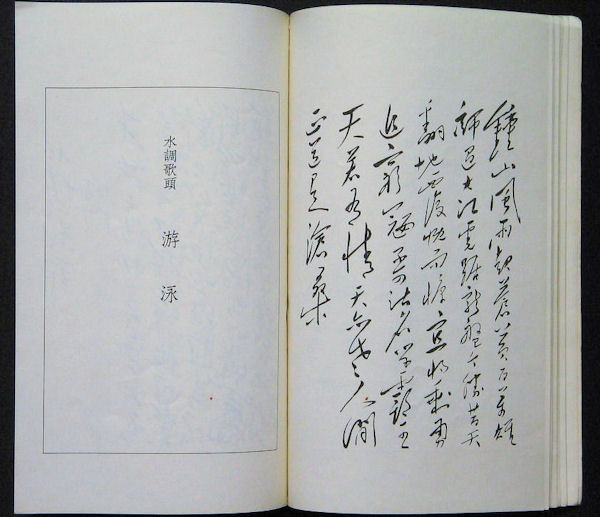 鍾山風雨起蒼黃百萬雄
師過大江虎踞龍盤今勝昔天
翻地覆慨而慷宜將剩勇
追窮寇不可沽名學霸王
天若有情天亦老人間
正道是滄桑
水調歌頭
游泳